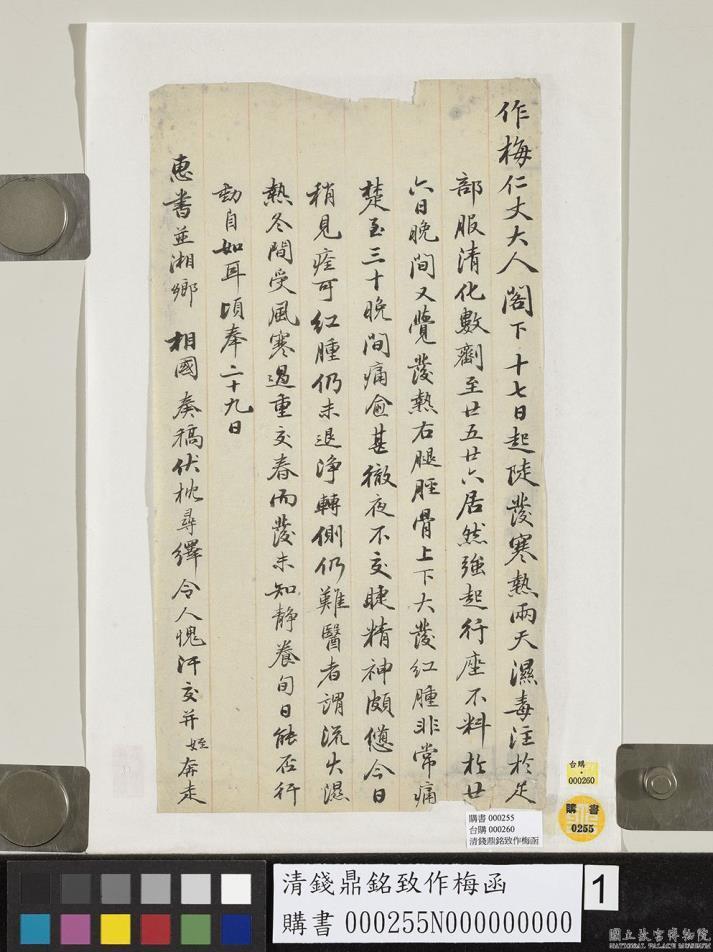 作梅仁丈大人閣下十七日起陡發寒熱兩天濕毒注於足
部服清化數劑至廿五廿六居然強起行座不料於廿
六日晚間又覺發熱右腿脛骨上下大發紅腫非常痛
楚至三十晚間痛愈甚徹夜不交睫精神頗憊今日
稍見痊可紅腫仍未退淨轉側仍難醫者謂流火濕
熱冬間受風寒過重交春而發未知靜養旬日能否行
動自如耳頃奉二十九日
惠書並湘鄉相國奏稿伏枕尋繹令人愧汗交并姪奔走
台購
000260
購書
0255
購書 000255
台購 000260
清錢鼎銘致作梅函
清錢鼎銘致作梅函
購書 000255N000000000
1
國立故宮博物院
NATIONAL PALACE MUSEUM